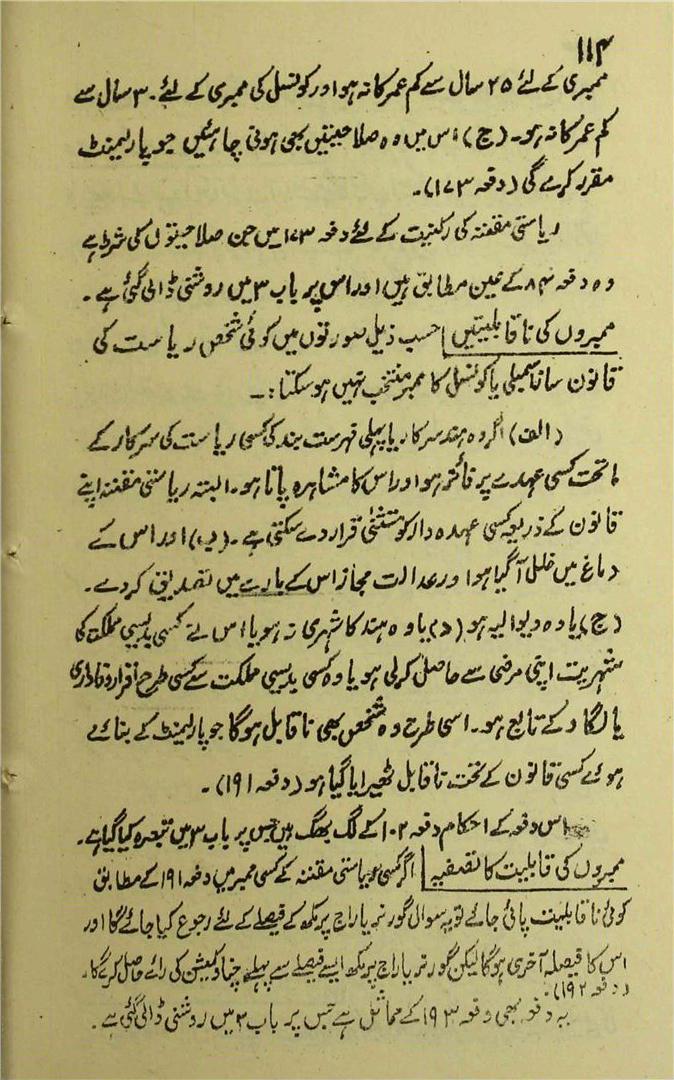 ۱۱۴
ممبری کے لئے ۲۵ سال سے کم عمر کا نہ ہو اور کونسل کی ممبری کے لئے ۳۰ سال سے
کم عمر کا نہ ہو۔ (ج) اس میں وہ صلاحیتیں بھی ہونی چاہئیں جو پارلیمنٹ
مقرر کرے گی (دفعہ ۱۷۳)۔
ریاستی مقننہ کی رکنیت کے لئے دفعہ ۱۷۳ میں جن صلاحیتوں کی شرط ہے
وہ دفعہ ۸۴ کے عین مطابق ہیں اور اس پر باب ۳ میں روشنی ڈالی گئی ہے۔
ممبروں کی ناقابلیتیں | حسب ذیل صورتوں میں کوئی شخص ریاست کی
قانون ساز اسمبلی یا کونسل کا ممبر منتخب نہیں ہو سکتا:۔
(الف) اگر وہ ہند سرکار یا پہلی فہرست بند کی کسی ریاست کی سرکار کے
ماتحت کسی عہدے پر فائز ہو اور اس کا مشاہرہ پاتا ہو۔ البتہ ریاستی مقننہ اپنے
قانون کے ذریعہ کسی عہدہ دار کو مستثنٰی قرار دے سکتی ہے۔ (ب) اور اس کے
دماغ میں خلل آ گیا ہو اور عدالت مجاز اس کے بارے میں تصدیق کر دے۔
(ج) یا وہ دیوالیہ ہو (د) یا وہ ہند کا شہری نہ ہو یا اس نے کسی بدیسی مملکت کی
شہریت اپنی مرضی سے حاصل کر لی ہو یا وہ کسی بدیسی مملکت سے کسی طرح اقرار وفاداری
یا لگاد کے تابع ہو۔ اسی طرح وہ شخص بھی ناقابل ہوگا جو پارلیمنٹ کے بنائے
ہوئے کسی قانون کے تحت ناقابل ٹھیرایا گیا ہو (دفعہ ۱۹۱)۔
اس دفعہ کے احکام دفعہ ۱۰۲ کے لگ بھگ ہیں جس پر باب ۳ میں تبصرہ کیا گیا ہے۔
ممبروں کی قابلیت کا تصفیہ | اگر کسی ریاستی مقننہ کے کسی ممبر میں دفعہ ۱۹۱ کے مطابق
کوئی ناقابلیت پائی جائے تو یہ سوال گورنر یا راج پرمکھ کے فیصلے کے لئے رجوع کیا جائے گا اور
اس کا فیصلہ آخری ہوگا لیکن گورنر یا راج پرمکھ ایسے فیصلے سے پہلے چناؤ کمیشن کی رائے حاصل کرے گا۔
(دفعہ ۱۹۲)۔
یہ دفعہ بھی دفعہ ۱۹۳ کے مماثل ہے جس پر باب ۳ میں روشنی ڈالی گئی ہے۔